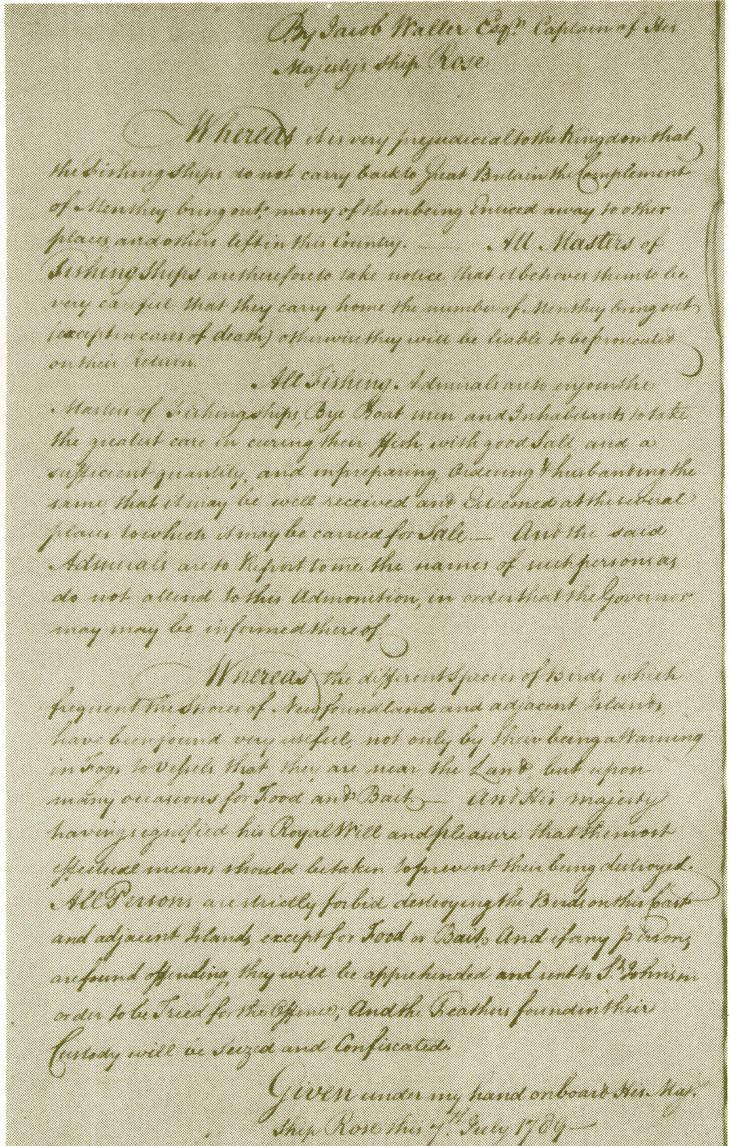 By Jacob Waller Esqr. Captain of His
Majesty's Ship Rose
Whereas it is very prejudicial to the Kingdom that
the Fishing Ships do not carry back to Great Britain the Complement
of Men they bring out, many of them being Enticed away to other
places, and others left in this Country. — All Masters of
Fishing Ships are therefore to take notice, that it behoves them to be
very careful that they carry home the number of Men they bring out
(except in cases of death) otherwise they will be liable to be prosecuted
on their Return.
All Fishing Admirals are to enjoin the
Masters of Fishing Ships, Bye Boat men and Inhabitants to take
the greatest care in curing their Fish, with good Salt and a
sufficient quantity, and in preparing, Ordering & husbanding the
same, that it may be well received and Esteemed at the several
places to which it may be carried for Sale — And the said
Admirals are to Report to me the names of such persons as
do not attend to this Admonition, in order that the Governor
may may be informed thereof.
Whereas the different Species of Birds which
frequent the Shores of Newfoundland and adjacent Islands,
have been found very useful, not only by their being a Warning
in Fogs to Vessels that they are near the Land, but upon
many occasions for Food and Bait. — And His majesty
having signified his Royal Will and pleasure that the most
effectual means should be taken to prevent their being destroyed.
All Persons are strictly forbid destroying the Birds on this Coast
and adjacent Islands except for Food or Bait; And if any persons
are found offending, they will be apprehended and sent to St. Johns in
order to be Tried for the Offence; And the Feathers found in their
Custody will be Seized and Confiscated.
Given under my hand on board His Maj.
Ship Rose this 7th July 1789 —